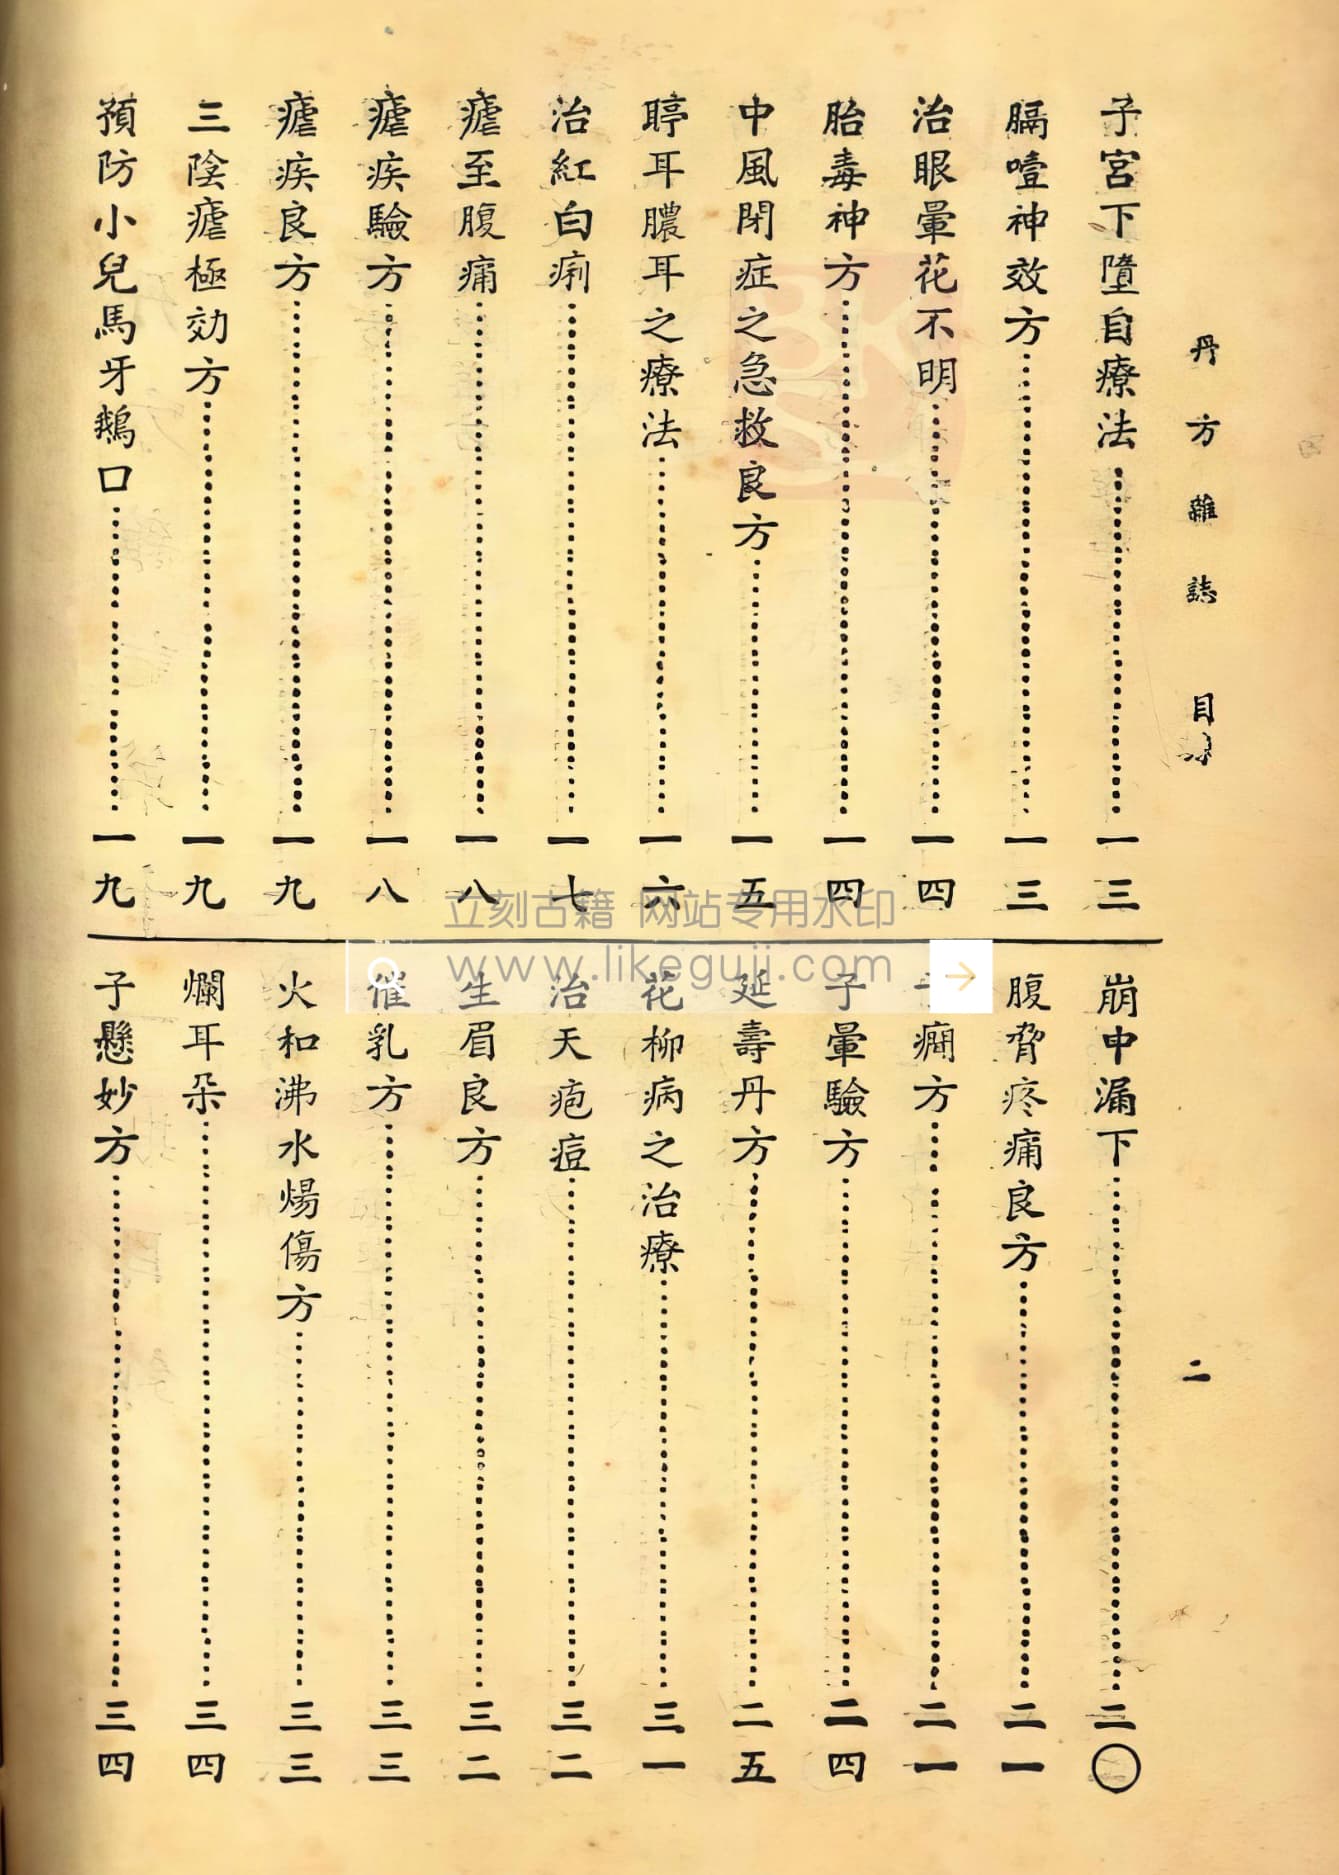 丹方雜誌 目录 二
子宮下墮自療法……一三
膈噎神效方……一三
治眼暈花不明……一四
胎毒神方……一四
中風閉症之急救良方……一五
聤耳膿耳之療法……一六
治紅白痢……一七
瘧至腹痛……一八
瘧疾驗方……一八
瘧疾良方……一九
三陰瘧極効方……一九
預防小兒馬牙鵝口……一九
崩中漏下……二〇
腹脅疼痛良方……二一
癎方……二一
子暈驗方……二四
延壽丹方……二五
花柳病之治療……三一
治天疱痘……三二
生眉良方……三二
催乳方……三三
火和沸水煬傷方……三三
爛耳朵……三四
子懸妙方……三四
立刻古籍 网站专用水印
www.likeguji.com